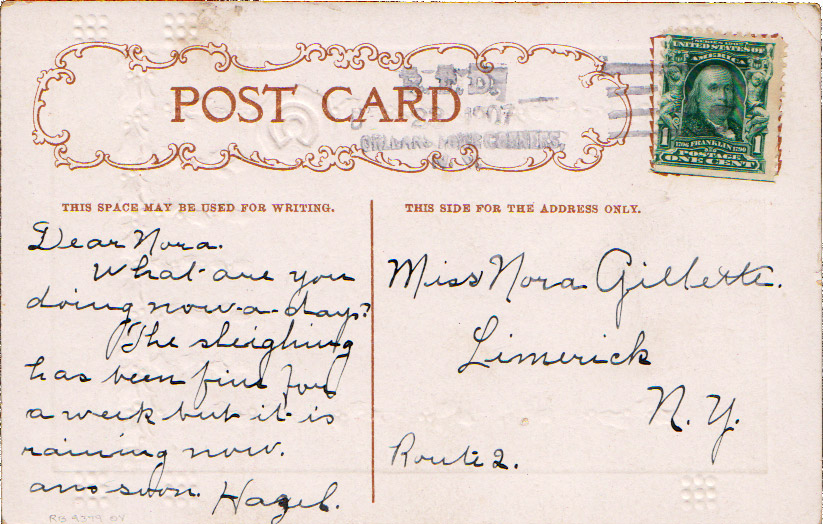 POST CARD
R.F.D.
1907
UNITED STATES OF
AMERICA
1 1
1706 FRANKLIN 1790
POSTAGE
ONE CENT
THIS SPACE MAY BE USED FOR WRITING.
Dear Nora.
What are you
doing now-a-days?
The sleighing
has been fine for
a week but it is
raining now.
ans soon. Hazel.
THIS SIDE FOR THE ADDRESS ONLY.
Miss Nora Gillette.
Limerick
N.Y.
Route 2.